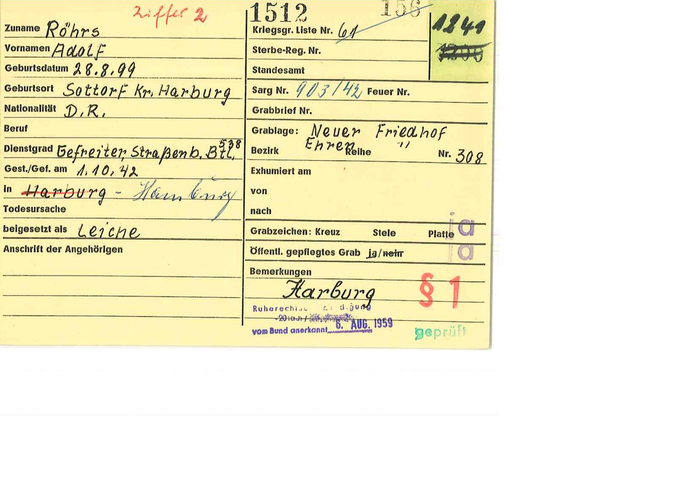 Ziffer 2
Zuname Röhrs
Vornamen Adolf
Geburtsdatum 28.8.99
Geburtsort Sottorf Kr. Harburg
Nationalität D.R.
Beruf
Dienstgrad Gefreiter, Straßenb. Btl. 538
Gest./Gef. am 1.10.42
in Harburg - Hamburg
Todesursache
beigesetzt als Leiche
Anschrift der Angehörigen
1512 156
Kriegsgr. Liste Nr. 61
Sterbe-Reg. Nr.
Standesamt
1241
1200
Sarg Nr. 903/42 Feuer Nr.
Grabbrief Nr.
Grablage: Neuer Friedhof
Bezirk Ehren Reihe " Nr. 308
Exhumiert am
von
nach
Grabzeichen: Kreuz Stele Platte ja
Öffentl. gepflegtes Grab ja/nein ja
Bemerkungen
Harburg
§ 1
vom Bund anerkannt 6. AUG. 1959
geprüft